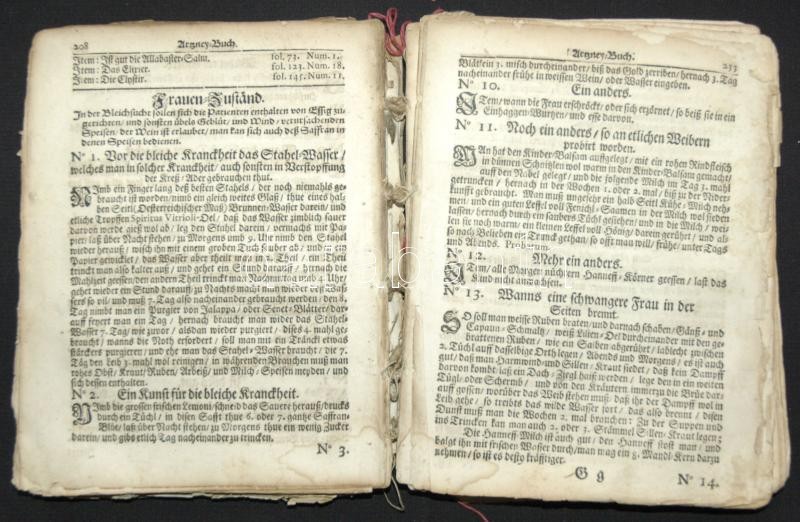 208
Artzney-Buch.
Item: Ist gut die Allabaster-Salm. fol. 73. Num. 1.
Item: Das Ehrer. fol. 123. Num. 18.
Item: Die Clystir. fol. 145. Num. 11.
Frauen-Zuständ.
In der Bleichsucht sollen sich die Patienten enthalten von Essig zu-
gerichten / und sonsten übels Geblüt / und Wind / verursachenden
Speisen / der Wein ist erlaubet / man kan sich auch deß Saffran in
denen Speisen bedienen.
No 1. Vor die bleiche Kranckheit das Stahel-Wasser /
welches man in solcher Kranckheit / auch sonsten in Verstopffung
der Kreß / Ader gebrauchen thut.
Nimb ein Finger lang deß besten Stahels / der noch niemahls ge-
braucht ist worden / nimb ein gleich weites Glaß / thue eines hal-
ben Seitl (Oesterreichischer Maß) Brunnen-Wasser darein / und
etliche Tropffen Spiritus Vitrioli-Oel / daß das Wasser zimblich sauer
darvon werde gieß wol ab / leg den Stahel darein / vermachs mit Pa-
pier / laß über Nacht stehen / zu Morgens umb 9. Uhr nimb den Stahel
wieder herauß / wisch ihn mit einem groben Tuch sauber ab / und in ein
Papier gewicklet / das Wasser aber theil man in 2. Theil / ein Theil
trinckt man also kalter auß / und gehet ein Stund darauff / hernach die
Mahlzeit geessen / den andern Theil trinckt man Nachmittag umb 4. Uhr /
gehet wieder ein Stund darauff / zu Nachts macht man wieder des Was-
sers so vil / und muß 7. Tag also nacheinander gebraucht werden / den 8.
Tag nimbt man ein Purgier von Jalappa / oder Senet-Blätter / dar-
auff feyert man ein Tag / hernach braucht man wider das Stahel-
Wasser 7. Tag / wie zuvor / alsdan wieder purgiert / dises 4. mahl ge-
braucht / wanns die Noth erfordert / soll man mit ein Träncktl etwas
stärckers purgieren / und ehe man das Stahel-Wasser braucht / die 7.
Täg den Leib 3. mahl wol reinigen / in währenden Brauchen muß man
rohes Obst / Kraut / Ruben / Arbeiß / und Milch / Speisen meyden / und
sich dessen enthalten.
No 2. Ein Kunst für die bleiche Kranckheit.
Nimb die grossen frischen Lemoni / schneid das Sauere herauß / drucks
durch ein Tüchl / in disen Safft thue 6. oder 7. gantze Saffran-
Blüe / laß über Nacht stehen / zu Morgens thue ein wenig Zucker
darein / und gibs etlich Tag nacheinander zu trincken.
No 3.
Artzney-Buch.
233
nacheinander frühe in weissen Wein / oder Wasser eingeben.
No 10. Ein anders.
Item / wann die Frau erschröckt / oder sich erzörnet / so beiß sie in ein
Einhaggen-Wurtzen / und esse darvon.
No 11. Noch ein anders / so an etlichen Weibern
probirt worden.
Man hat den Kinder-Balsam auffgelegt / mit ein rohen Rindfleisch
in dünnen Schnitzlen wol warm in den Kinder-Balsam gemacht /
auff den Nabel gelegt / und die folgende Milch im Tag 3. mahl
getruncken / hernach in der Wochen 1. oder 2. mahl / biß zu der Nider-
kunfft gebraucht. Man muß ungefehr ein halb Seitl Kühe-Milch neh-
men / und ein guten Leffel voll Fenichl-Saamen in der Milch wol sieden
lassen / hernach durch ein saubers Tüchl gesiehen / und in die Milch / wei-
len sie noch warm / ein kleinen Leffel voll Hönig / darein gerührt / und als-
so nach Belieben ein Trunck gethan / so offt man will / frühe / unter Tags
und Abends. Prob.
No 12. Mehr ein anders.
Item / alle Morgen nüchtern Hanneff-Körner geessen / last das
Kind nicht anwachsen.
No 13. Wanns eine schwangere Frau in der
Seiten brennt.
So soll man weisse Ruben braten / und darnach schaben / Gänß- und
Capaun-Schmaltz / weiß Lilien-Oel durcheinander mit den ge-
brattenen Ruben / wie ein Salben abgerührt / lablecht zwischen
2. Tüchl auff dasselbige Orth legen / Abends und Morgens / es ist auch
gut / daß man
darvon kombt / laß ein Dach-Ziegl heiß werden / lege den in ein weiten
Tügl / oder Scherm / und von den Kräutern immerzu die Brüe dar-
auff gossen / worüber das Weib stehen muß / daß ihr der Dampff wol in
Leib gehe / so treibts das wilde Wasser fort / das also brennt / disen
Dunst muß man die Wochen 2. mal brauchen: Zu der Suppen und
ins Trincken kan man auch 2. oder 3. Stämmel Sillen-Kraut legen;
Die Hanneff-Milch ist auch gut / den Hanneff stost man / und
balgt ihn mit frischen Wasser durch / man mag ein 8. Mandl-Kern darzu
nehmen / so ist es desto kräfftiger.
G g
No 14.